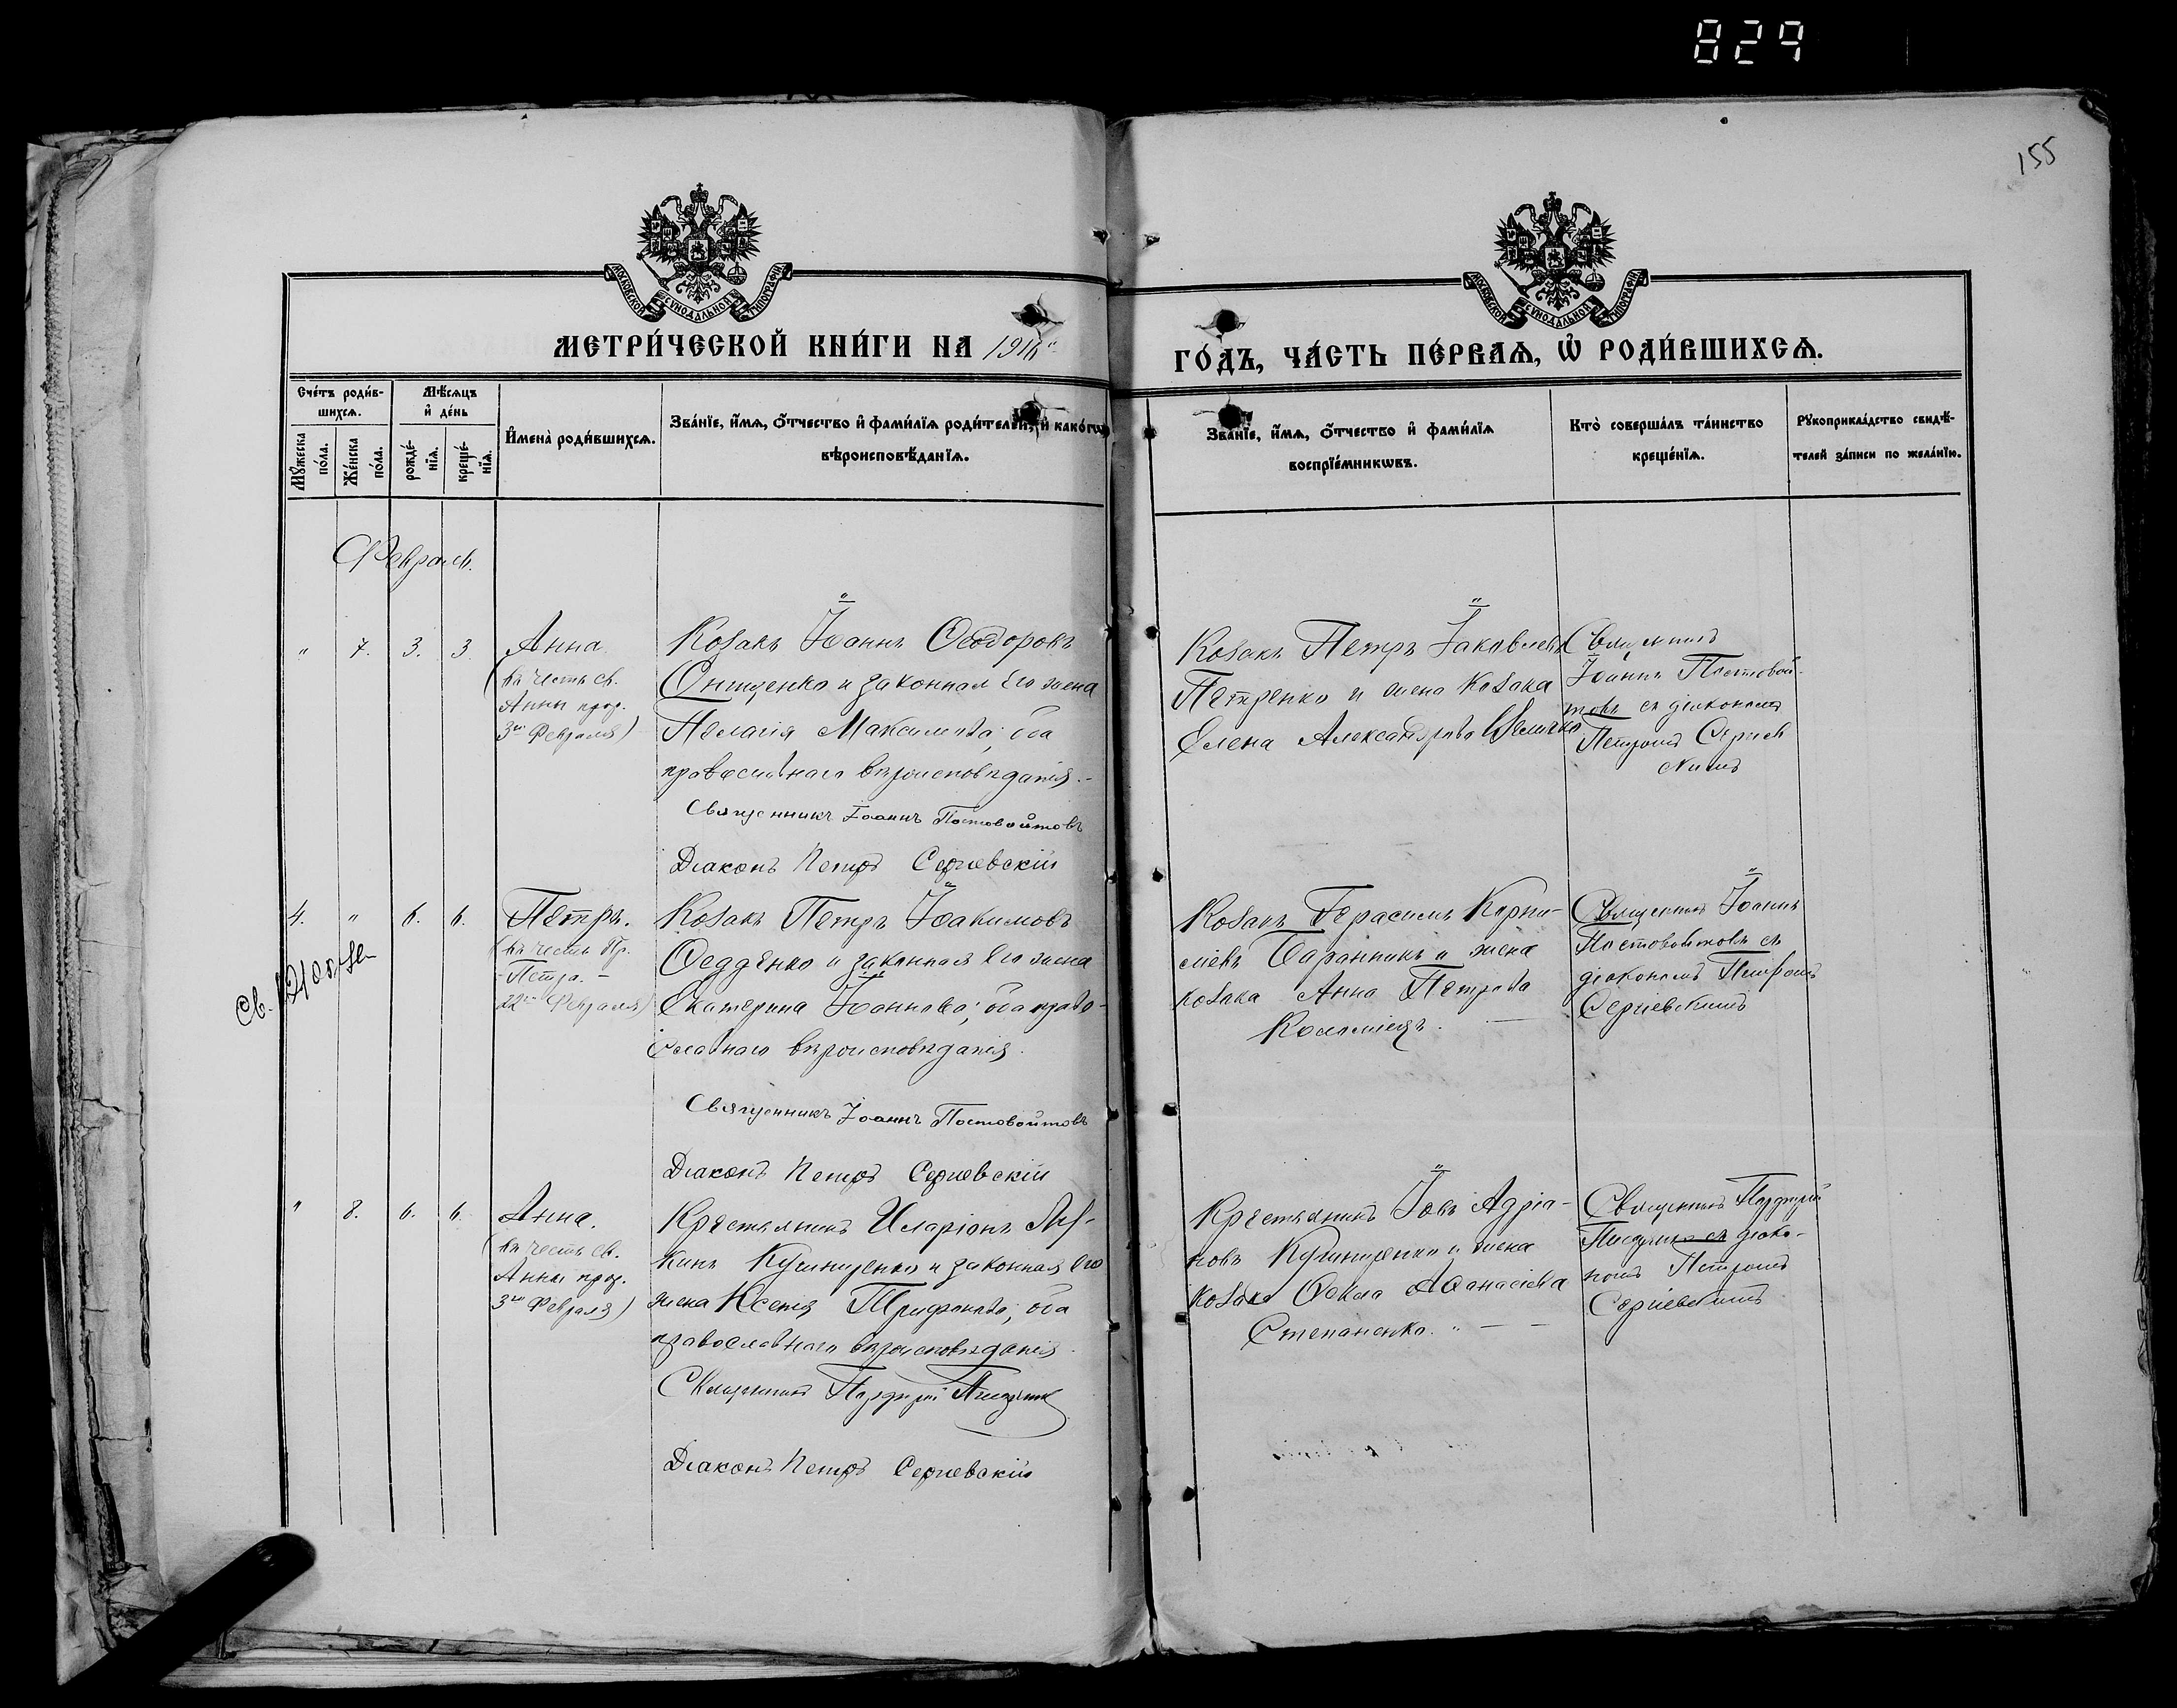 829
155
МОСКОВСКОЙ СѴНОДАЛЬНОЙ ТИПОГРАФІИ
МОСКОВСКОЙ СѴНОДАЛЬНОЙ ТИПОГРАФІИ
МЕТРИ́ЧЕСКОЙ КНИ́ГИ НА 1916
ГО́ДЪ, ЧА́СТЬ ПЕ́РВАѦ, Ѡ҆ РОДИ́ВШИХСѦ.
Сче́тъ роди́в-
шихсѧ.
Мꙋ́жеска
по́ла.
Же́нска
по́ла.
Мѣ́сѧцъ
и҆ де́нь
рожде́-
нїѧ.
креще́-
нїѧ.
И҆мена̀ роди́вшихсѧ.
Зва́нїе, и҆́мѧ, о҆́тчество и҆ фами́лїѧ роди́телей, и҆ како́гѡ
вѣроисповѣ́данїѧ.
Зва́нїе, и҆́мѧ, о҆́тчество и҆ фами́лїѧ
воспрїе́мникѡвъ.
Кто̀ соверша́лъ та́инство
креще́нїѧ.
Рꙋкоприкла́дство свидѣ́-
телей за́писи по жела́нїю.
Февраль.
" 7. 3. 3. Анна.
(въ честь св.
Анны прор.
3го Февраля)
Козакъ Іоаннъ Ѳеодоровъ
Онищенко и законная его жена
Пелагія Максимова, оба
православнаго вѣроисповѣданія.-
Священникъ Іоаннъ Постовойтовъ
Діаконъ Петръ Сергіевскій
Козакъ Петръ Іаковлевъ
Петренко и жена козака
Елена Александрова
Священникъ
Іоаннъ Постовой-
товъ съ діакономъ
Петромъ Сергіев
скимъ
4. " 6. 6. Петръ.
(въ честь Пр.
Петра. -
22го Февраля)
Козакъ Петръ Іоакимовъ
Ѳедденко и законная его жена
Екатерина Іоаннова; оба право-
славнаго вѣроисповѣданія.
Священникъ Іоаннъ Постовойтовъ
Діаконъ Петръ Сергіевскій
Козакъ Герасимъ Корни-
ліевъ Баранникъ и жена
козака Анна Петрова
Коломіецъ. —
Священникъ Іоаннъ
Постовойтовъ съ
діакономъ Петромъ
Сергіевскимъ
" 8. 6. 6. Анна.
(въ честь св.
Анны прор.
3го Февраля)
Крестьянинъ Иларіонъ Лу-
кинъ Кушниренко и законная его
жена Ксенія Трифонова, оба
православнаго вѣроисповѣданія
Священникъ Порфирій
Діаконъ Петръ Сергіевскій
Крестьянинъ Іовъ Адріа-
новъ Кушниренко и жена
козака Ѳекла Аѳанасіева
Степаненко. " — —
Священникъ Порфирій
съ діако-
номъ Петромъ
Сергіевскимъ